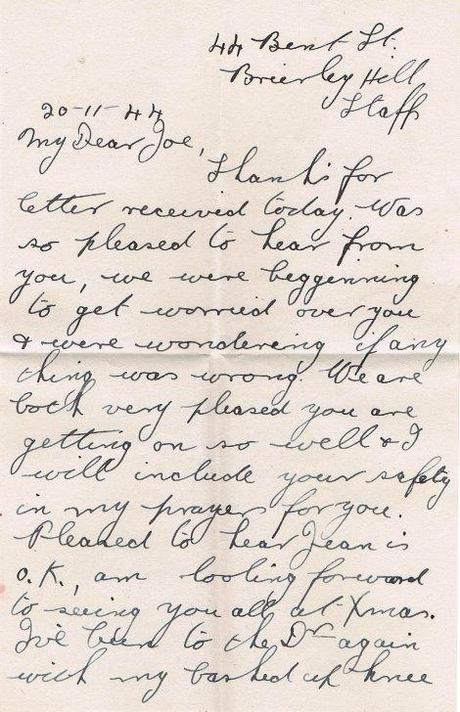 44 Bent St.
Brierley Hill
Staff
20-11-44
My Dear Joe,
Thanks for
letter received today. Was
so pleased to hear from
you, we were begginning
to get worried over you
& were wondering if any
thing was wrong. We are
both very pleased you are
getting on so well & I
will include your safety
in my prayers for you.
Pleased to hear Jean is
O.K., am looking forward
to seeing you all at Xmas.
I've been to the Dr again
with my bashed up knee